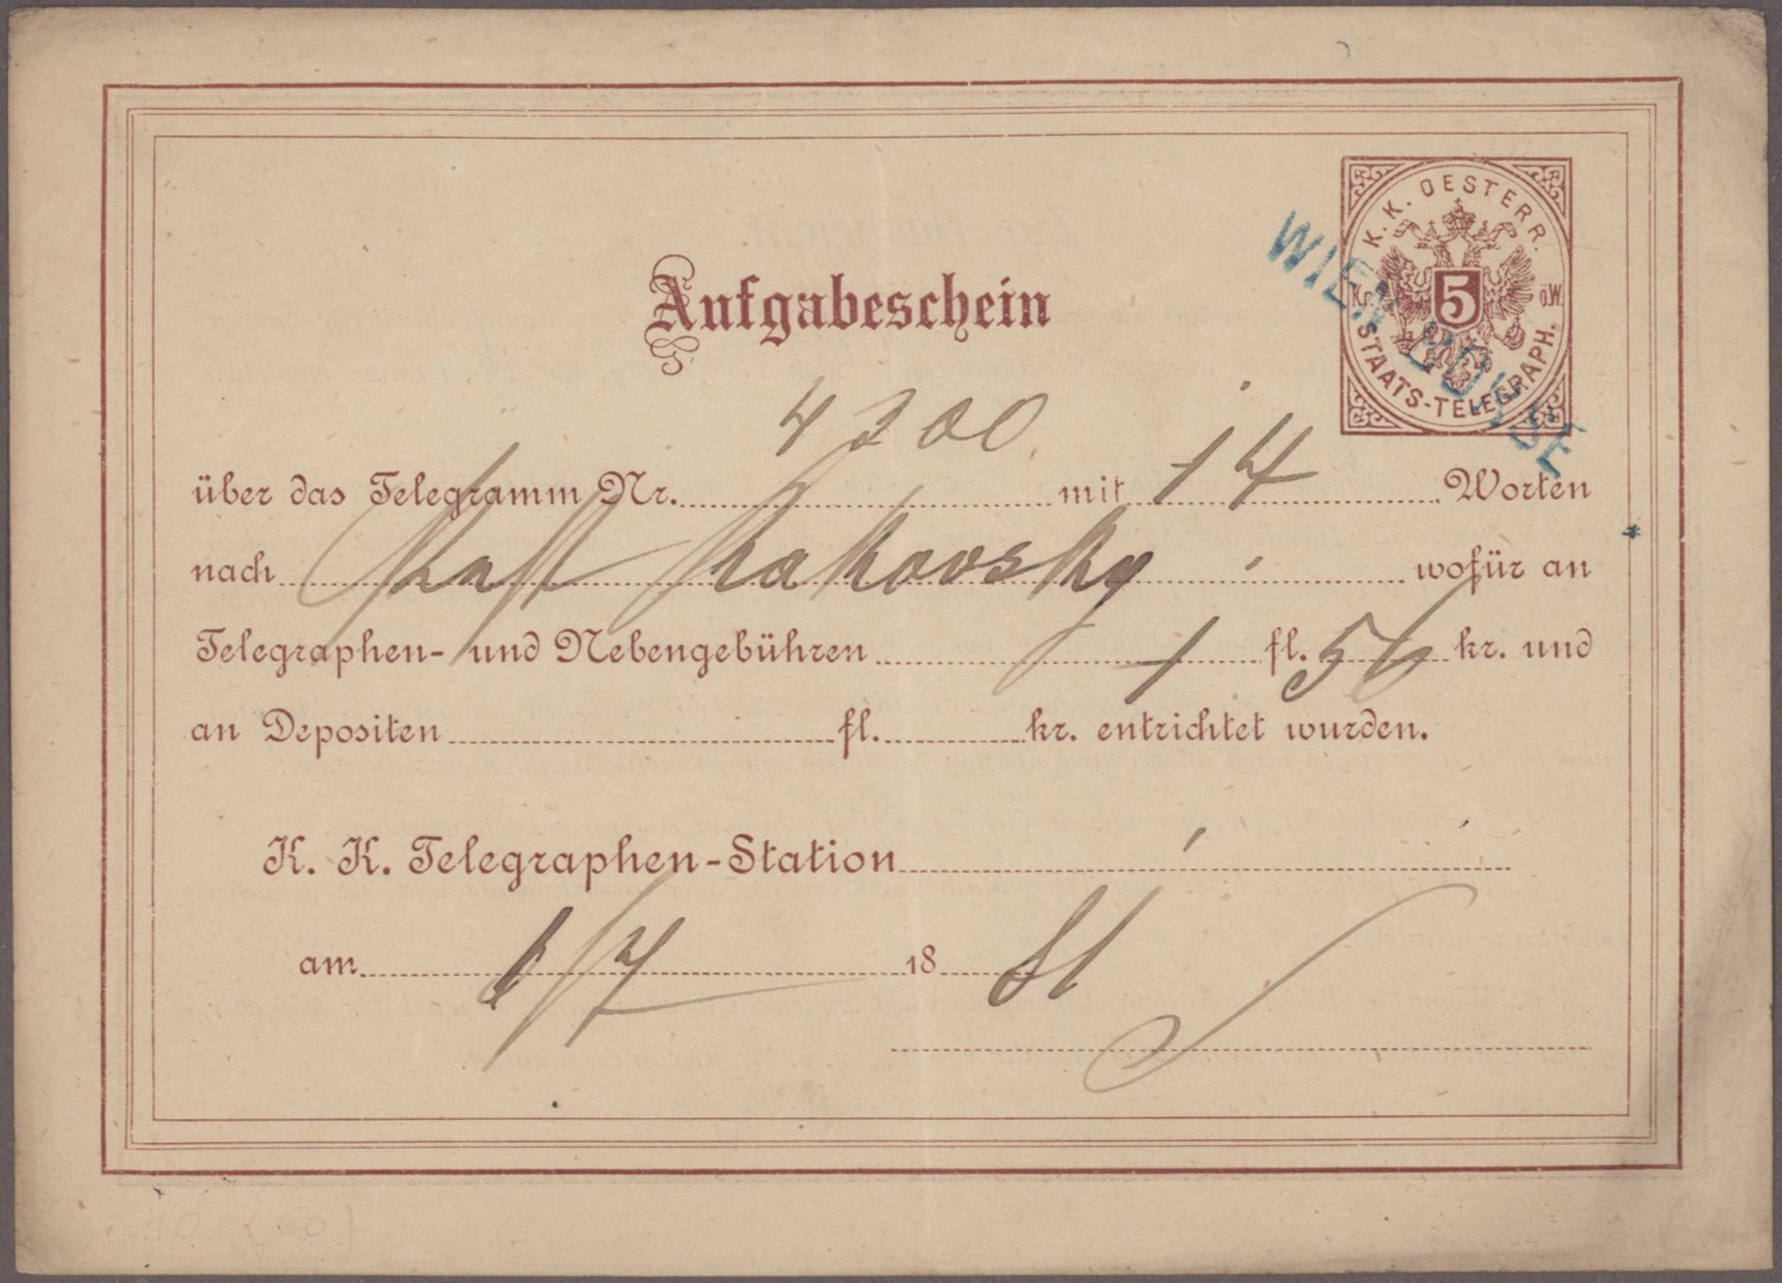 K. K. OESTERR.
Kr. 5 ö.W.
STAATS-TELEGRAPH.
WIEN BÖRSE
Aufgabeschein
über das Telegramm Nr. 4200 mit 14 Worten
nach wofür an
Telegraphen- und Nebengebühren 1 fl. 56 kr. und
an Depositen fl. kr. entrichtet wurden.
K. K. Telegraphen-Station
am 18 81